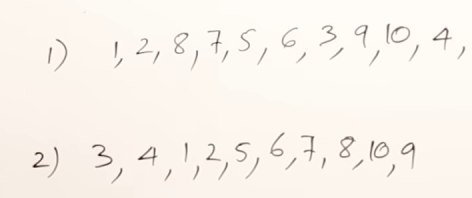 1) 1, 2, 8, 7, 5, 6, 3, 9, 10, 4,
2) 3, 4, 1, 2, 5, 6, 7, 8, 10, 9